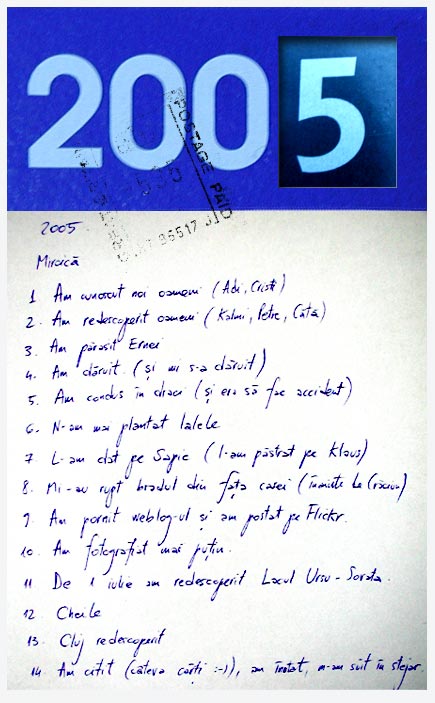 2005
POSTAGE PAID
2005
Miroică
1 Am cunoscut noi oameni (Adi, Cristi)
2. Am redescoperit oameni (Kalmi, Petre, Cătă)
3. Am părăsit Ernei
4. Am dăruit. (și mi s-a dăruit)
5. Am condus în draci (și era să fac accident)
6. N-am mai plantat lalele
7. L-am dat pe Sapie (l-am păstrat pe Klaus)
8. Mi-au rupt bradul din fața casei (înainte de Crăciun)
9. Am pornit weblog-ul și am postat pe Flickr.
10. Am fotografiat mai puțin.
11. De 1 iulie am redescoperit Lacul Ursu - Sovata.
12. Cheile
13. Cluj redescoperit
14. Am citit (câteva cărți :-)), am înotat, m-am suit în stejar.